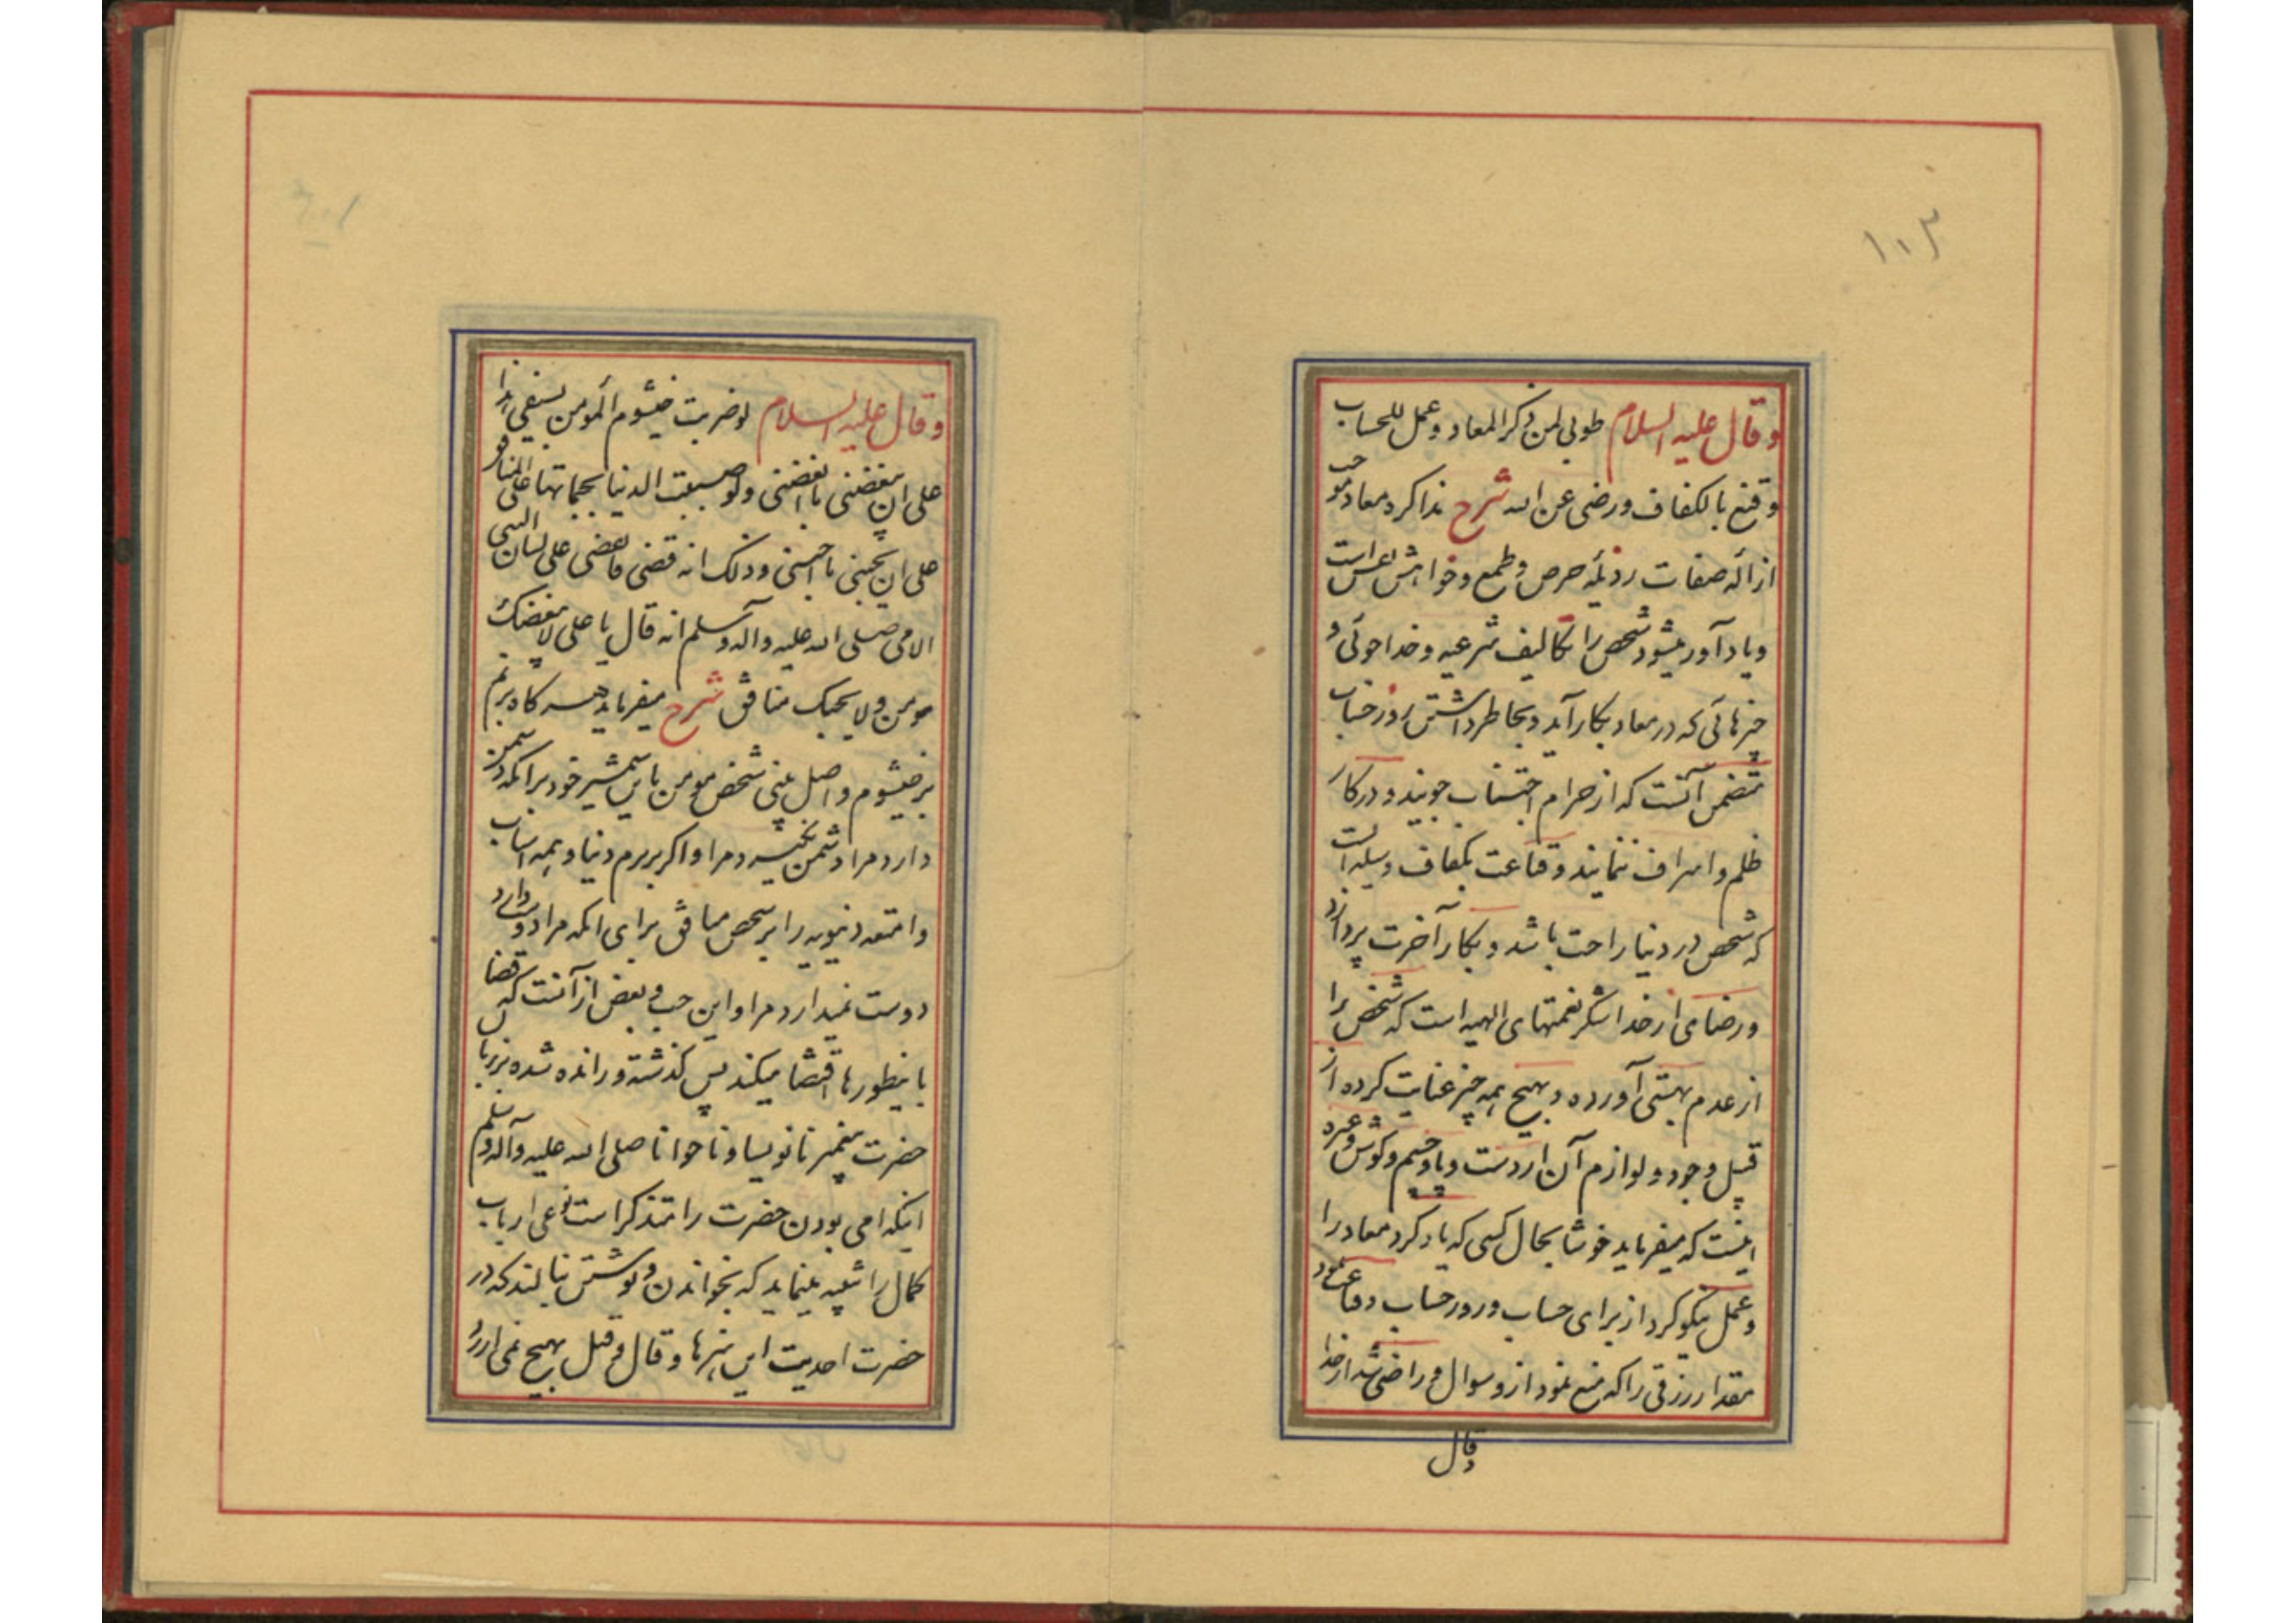 ۱۰۳
وقال علیه السلام طوبی لمن ذکر المعاد و عمل للحساب
وقنع بالکفاف ورضی عن الله شرح تذاکر معاد موجب
ازاله صفات رذیله حرص و طمع و خواهش نفس است
و یاد آور میشود شخص را تکالیف شرعیه و خداجوئی و
چیزهائی که در معاد بکار آید و بخاطر داشتن روز حساب
متضمن آنست که از حرام اجتناب جویند و در کار
ظلم و اسراف ننمایند و قناعت بکفاف وسیله است
که شخص در دنیا راحت باشد و بکار آخرت پردازد
و رضای از خدا شکر نعمتهای الهیه است که شخص را
از عدم بهستی آورده و بهیچ همه چیز عنایت کرده از
قبیل وجود و لوازم آن از دست و پا و چشم و گوش و غیره
اینست که میفرماید خوشا بحال کسی که یاد کرد معاد را
و عمل نیکو کرد از برای حساب و روز حساب و قناعت نمود
مقدار رزقی را که منع نمود از او سوال و راضی شد از خدا
وقال
وقال علیه السلام لو ضربت خیشوم المومن بسیفی هذا
علی ان یبغضنی ما ابغضنی ولو صببت الدنیا بجماتها علی المنافق
علی ان یحبنی ما احبنی وذلک انه قضی فانقضی علی لسان النبی
الامی صلی الله علیه وآله وسلم انه قال یا علی لا یبغضک
مومن ولا یحبک منافق شرح میفرماید هر گاه بزنم
بر خیشوم و اصل بینی شخص مومن باین شمشیر خود برای آنکه دشمن
دارد مرا دشمن نگیرد مرا و اگر بریزم دنیا و همه اسباب
و امتعه دنیویه را بر شخص منافق برای آنکه مرا دوست دارد
دوست نمیدارد مرا و این حب و بغض از آنست که قضا
باینطورها اقتضا میکند پس گذشته و رانده شده بزبان
حضرت پیغمبر نانویسا و ناخوانا صلی الله علیه وآله وسلم
اینکه امی بودن حضرت را متذکر است نوعی ارباب
کمال را تنبیه مینماید که بخواندن و نوشتن نبالند که در
حضرت احدیت این هنرها و قال و قیل بهیچ نمی ارزد